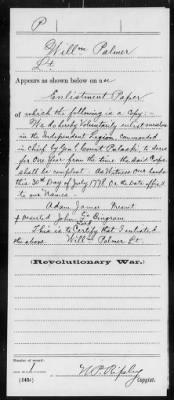 P
Willm Palmer
Lt.
Appears as shown below on an
Enlistment Paper
of which the following is a copy:-
We do hereby Voluntarily enlist ourselves
in the Independent Legion, Commanded
in Chief by Genl Count Pulaski, to serve
for One Year from the time the said Corps
shall be compleat. As Witness our hands
this 30th Day of July 1778, Or the Date affixed
to our Names
Adam James
John Bingram
This is to Certify that I enlisted
the above. Willm Palmer Lt.
(Revolutionary War.)
Number of record:
1
W.P. Ripley
Copyist.